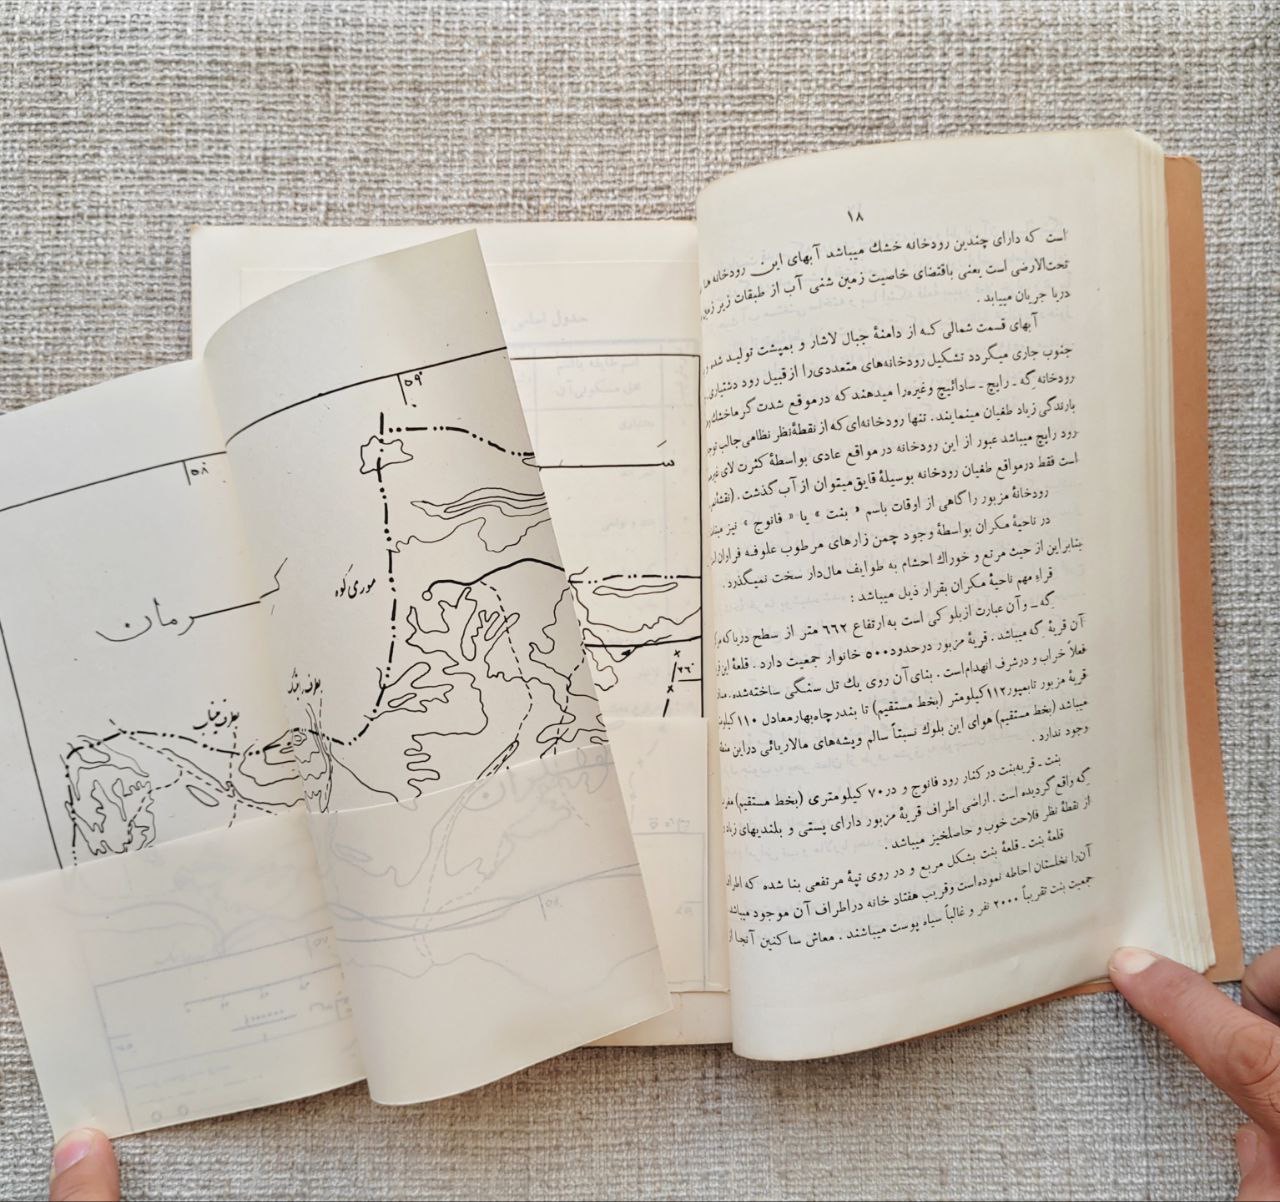 ۱۸
است که دارای چندین رودخانه خشك میباشد آبهای این رودخانه ها
تحت‌الارضی است یعنی باقتضای خاصیت زمین شنی آب از طبقات زیر زمین
دریا جریان مییابد .
آبهای قسمت شمالی که از دامنهٔ جبال لاشار و بمپشت تولید شده و
جنوب جاری میگردد تشکیل رودخانه‌های متعددی‌را ازقبیل رود دشتیاری
رودخانه گه ـ رایچ ـ سادائیچ وغیره‌را میدهند که درموقع شدت گرماخشك
بارندگی زیاد طغیان مینمایند . تنها رودخانه‌ای که از نقطهٔ نظر نظامی جالب
رود رایچ میباشد عبور از این رودخانه در مواقع عادی بواسطهٔ کثرت لای
است فقط درمواقع طغیان رودخانه بوسیلهٔ قایق میتوان از آب گذشت .
رودخانهٔ مزبور را گاهی از اوقات باسم « بنت » یا « فانوج » نیز
در ناحیهٔ مکران بواسطهٔ وجود چمن زارهای مرطوب علوفه فراوان
بنابراین از حیث مرتع و خوراك احشام به طوایف مال‌دار سخت نمیگذرد .
قراء مهم ناحیهٔ مکران بقرار ذیل میباشد :
گه ـ و آن عبارت از بلوکی است به ارتفاع ۶۶۲ متر از سطح دریا که
آن قریهٔ گه میباشد . قریهٔ مزبور درحدود ۵۰۰ خانوار جمعیت دارد . قلعهٔ این
فعلاً خراب و درشرف انهدام است . بنای آن روی یك تل سنگی ساخته‌شده .
قریهٔ مزبور تابمپور ۱۱۲ کیلومتر (بخط مستقیم) تا بندر چاه‌بهار معادل ۱۱۰
میباشد (بخط مستقیم) هوای این بلوك نسبتاً سالم وپشه‌های مالاریائی دراین
وجود ندارد .
بنت ـ قریه‌بنت در کنار رود فانوج و در ۷۰ کیلومتری (بخط مستقیم)
گه واقع گردیده است . اراضی اطراف قریهٔ مزبور دارای پستی و بلندیهای
از نقطهٔ نظر فلاحت خوب و حاصلخیز میباشد .
قلعهٔ بنت ـ قلعهٔ بنت بشکل مربع و در روی تپهٔ مرتفعی بنا شده که
آن‌را نخلستان احاطه نموده است وقریب هفتاد خانه در اطراف آن موجود میباشد
جمعیت بنت تقریباً ۲۰۰۰ نفر و غالباً سیاه پوست میباشند . معاش ساکنین آنجا از
۵۹°
۵۸°
موری کوه
کرمان
۲۶°